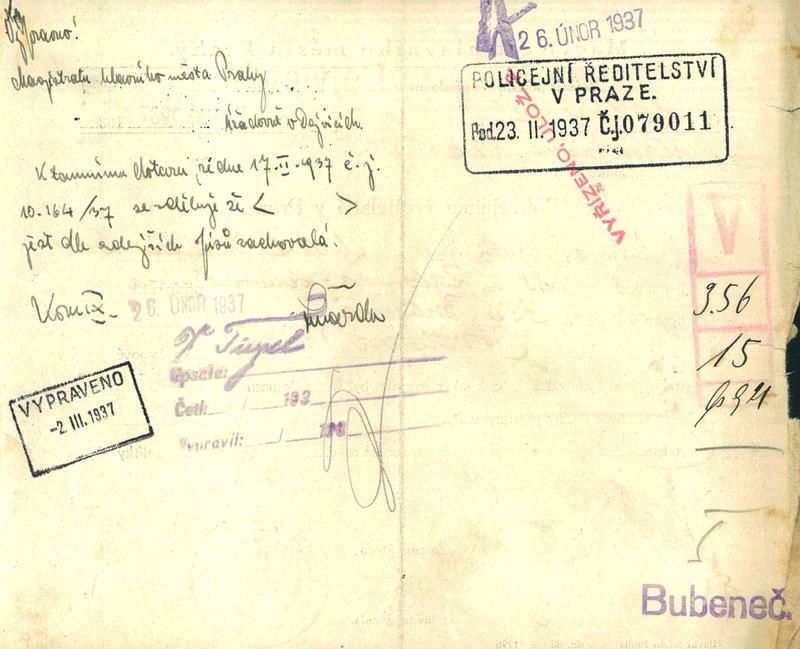 26. ÚNOR 1937
POLICEJNÍ ŘEDITELSTVÍ
V PRAZE.
Pod. 23. II. 1937 Č.j. 079011
VYŘÍZENO, ULOŽ
Magistrátu hlavního města Prahy
úřadovně v Dejvicích.
K tamnímu dotazu ze dne 17.II.1937 č.j.
10.164/37 se sděluje že < >
jest dle zdejších spisů zachovalá.
V
3.56
15
Kom IX.
26. ÚNOR 1937
Opsala:
Četl: / 193
Vypravil: / 193
VYPRAVENO
-2 III. 1937
Bubeneč.